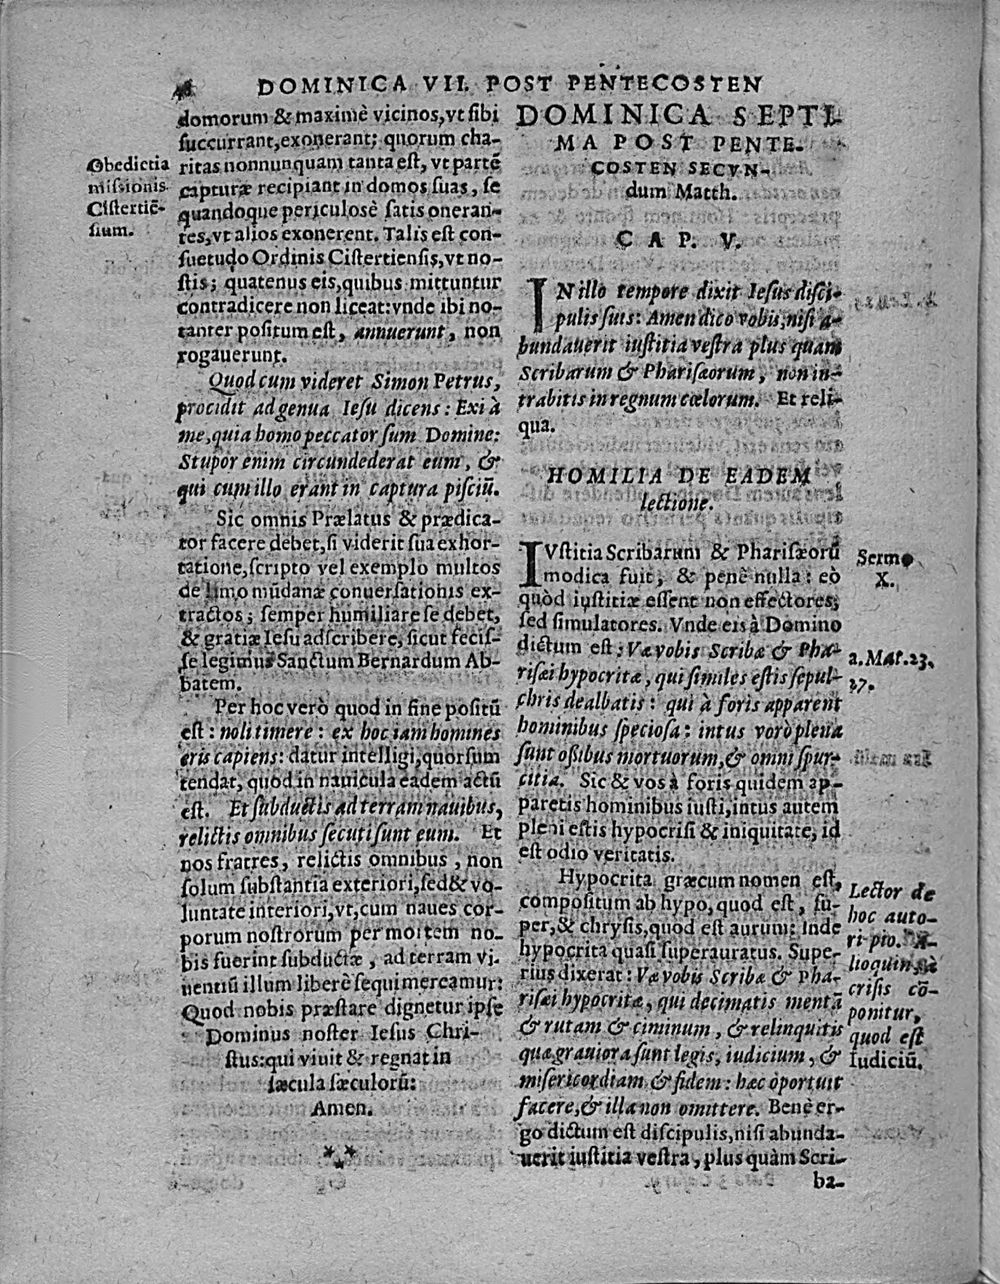 DOMINICA VII. POST PENTECOSTEN
domorum & maximè vicinos, vt sibi
succurrant, exonerant; quorum cha-
ritas nonnunquam tanta est, vt partẽ
capturæ recipiant in domos suas, se
quandoque periculosè satis oneran-
tes, vt alios exonerent. Talis est con-
suetudo Ordinis Cistertiensis, vt no-
stis; quatenus eis, quibus mittuntur
contradicere non liceat: vnde ibi no-
tanter positum est, annuerunt, non
rogauerunt.
Obedictia
missionis
Cistertiẽ-
sium.
Quod cum videret Simon Petrus,
procidit ad genua Iesu dicens: Exi à
me, quia homo peccator sum Domine:
Stupor enim circundederat eum, &
qui cum illo erant in captura pisciũ.
Sic omnis Prælatus & prædica-
tor facere debet, si viderit sua exhor-
tatione, scripto vel exemplo multos
de limo mũdanæ conuersationis ex-
tractos; semper humiliare se debet,
& gratiæ Iesu adscribere, sicut fecis-
se legimus Sanctum Bernardum Ab-
batem.
Per hoc verò quod in fine positũ
est: noli timere: ex hoc iam homines
eris capiens: datur intelligi, quorsum
tendat, quod in nauicula eadem actũ
est. Et subductis ad terram nauibus,
relictis omnibus secuti sunt eum. Et
nos fratres, relictis omnibus, non
solum substantia exteriori, sed & vo-
luntate interiori, vt, cum naues cor-
porum nostrorum per mortem no-
bis fuerint subductæ, ad terram vi-
uentiũ illum liberè sequi mereamur:
Quod nobis præstare dignetur ipse
Dominus noster Iesus Chri-
stus: qui viuit & regnat in
sæcula sæculorũ:
Amen.
***
DOMINICA SEPTI-
MA POST PENTE-
COSTEN SECVN-
dum Matth.
CAP. V.
IN illo tempore dixit Iesus disci-
pulis suis: Amen dico vobis, nisi a-
bundauerit iustitia vestra plus quam
Scribarum & Pharisæorum, non in-
trabitis in regnum cœlorum. Et reli-
qua.
HOMILIA DE EADEM
lectione.
IVstitia Scribarum & Pharisæorũ
modica fuit, & penè nulla: eò
quòd iustitiæ essent non effectores;
sed simulatores. Vnde eis à Domino
dictum est; Væ vobis Scribæ & Pha-
risæi hypocritæ, qui similes estis sepul-
chris dealbatis: qui à foris apparent
hominibus speciosa: intus voro plena
sunt ossibus mortuorum, & omni spur-
citia. Sic & vos à foris quidem ap-
paretis hominibus iusti, intus autem
pleni estis hypocrisi & iniquitate, id
est odio veritatis.
Sermo
X.
a. Mat. 23.
27.
Hypocrita græcum nomen est,
compositum ab hypo, quod est, su-
per, & chrysis, quod est aurum: inde
hypocrita quasi superauratus. Supe-
rius dixerat: Væ vobis Scribæ & Pha-
risæi hypocritæ, qui decimatis mentã
& rutam & ciminum, & relinquitis
quæ grauiora sunt legis, iudicium, &
misericordiam & fidem: hæc oportuit
facere, & illa non omittere. Benè er-
go dictum est discipulis, nisi abunda-
uerit iustitia vestra, plus quàm Scri-
ba-
Lector de
hoc auto-
ri pio. A-
lioquin
crisis cõ-
ponitur,
quod est
Iudiciũ.